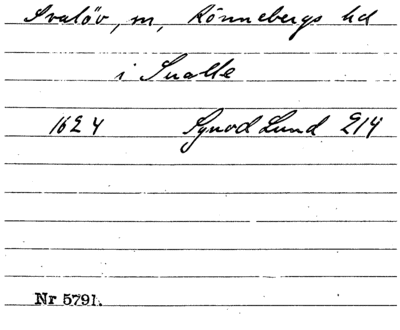 Svalöv, sn, Rönnebergs hd
i Sualle
1624 Synod Lund 214
Nr 5791.